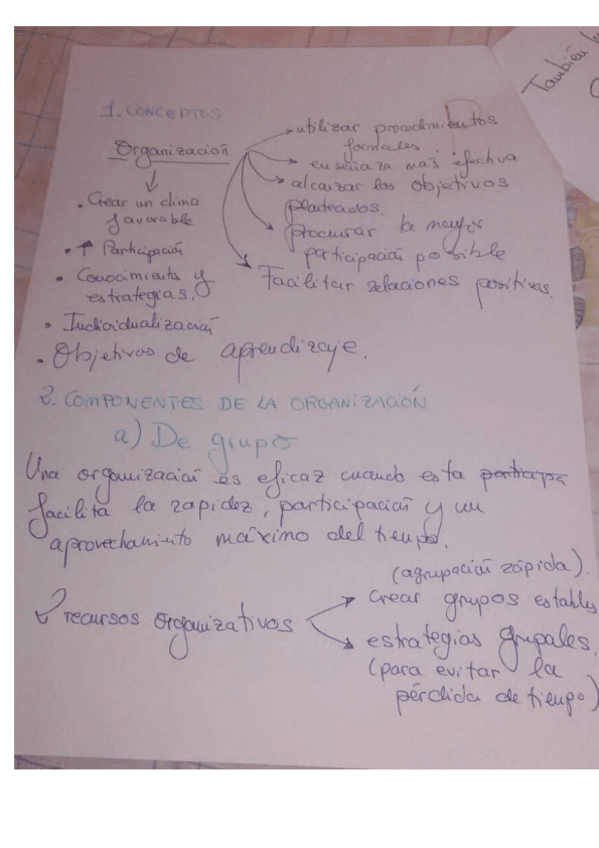 También
1. CONCEPTOS
Organización
• Crear un clima
favorable
• ↑ Participación
• Conocimiento y
estrategias.
• Individualización
• Objetivos de aprendizaje.
→ utilizar procedimientos
formales
→ enseñanza más efectiva
→ alcanzar los objetivos
planteados.
→ procurar la mayor
participación posible
→ Facilitar relaciones positivas.
2. COMPONENTES DE LA ORGANIZACIÓN
a) De grupo
Una organización es eficaz cuando esta participa
facilita la rapidez, participación y un
aprovechamiento máximo del tiempo.
2 recursos organizativos
(agrupación rápida).
→ crear grupos estables
→ estrategias grupales.
(para evitar la
pérdida de tiempo)